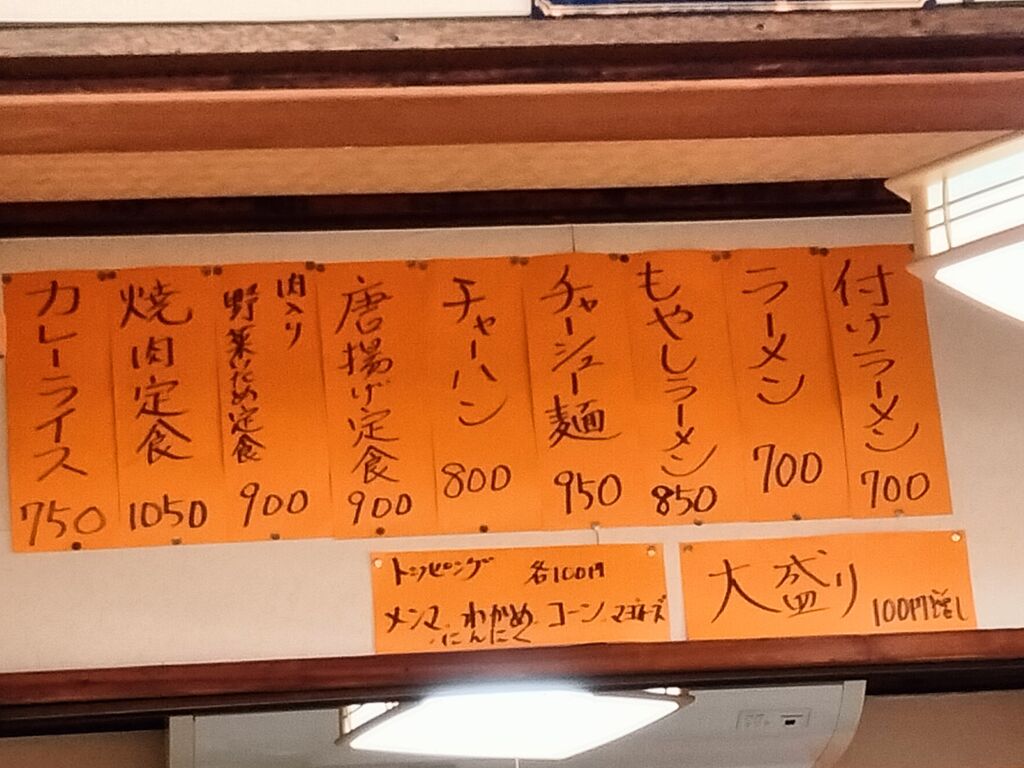 付けラーメン
700
ラーメン
700
もやしラーメン
850
チャーシュー麺
950
チャーハン
800
唐揚げ定食
900
肉入り
野菜いため定食
900
焼肉定食
1050
カレーライス
750
トッピング 各100円
メンマ わかめ コーン マヨネーズ
にんにく
大盛り
100円増し